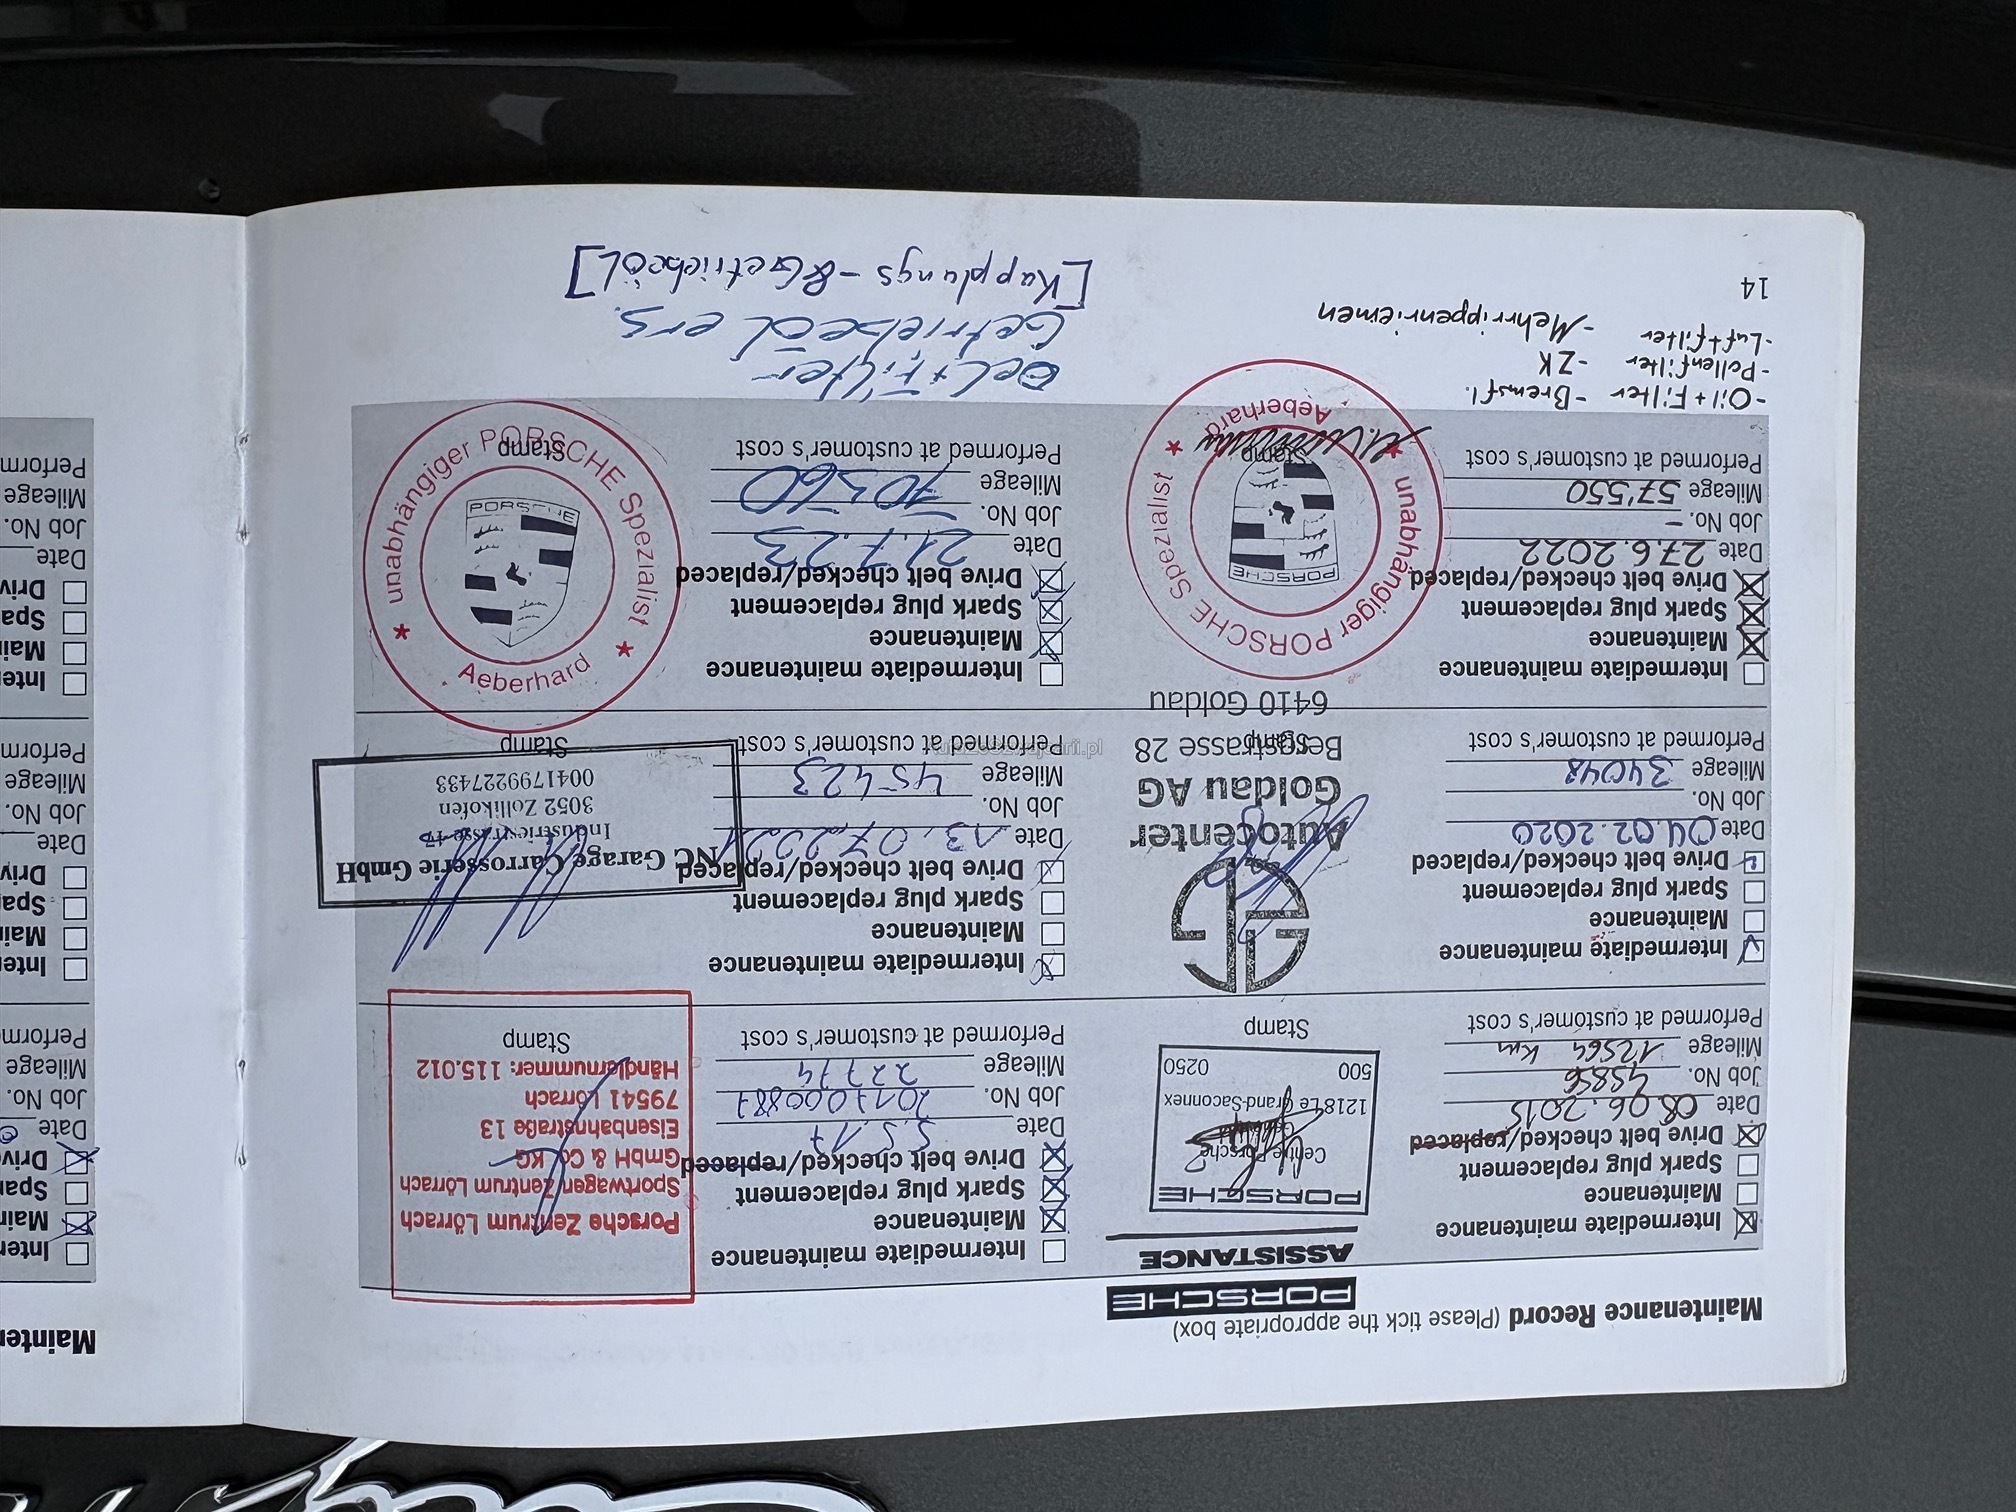 Maintenance Record (Please tick the appropriate box)
Intermediate maintenance
Maintenance
Spark plug replacement
Drive belt checked/replaced
Date 08.06.2015
Job No. 45856
Mileage 12564 km
Performed at customer's cost
PORSCHE
ASSISTANCE
PORSCHE
Centre Porsche
1218 Le Grand-Saconnex
500 0250
Stamp
Intermediate maintenance
Maintenance
Spark plug replacement
Drive belt checked/replaced
Date 5.5.17
Job No. 201700887
Mileage 22774
Performed at customer's cost
Porsche Zentrum Lörrach
Sportwagen Zentrum Lörrach
GmbH & Co. KG
Eisenbahnstraße 13
79541 Lörrach
Händlernummer: 115.012
Stamp
Intermediate maintenance
Maintenance
Spark plug replacement
Drive belt checked/replaced
Date 04.02.2020
Job No.
Mileage 34048
Performed at customer's cost
Autocenter
Goldau AG
Bergstrasse 28
Stamp
6410 Goldau
Intermediate maintenance
Maintenance
Spark plug replacement
Drive belt checked/replaced
Date 13.07.2021
Job No.
Mileage 45423
Performed at customer's cost
NC Garage Carrosserie GmbH
Industriestrasse
3052 Zollikofen
0041799227433
Stamp
Intermediate maintenance
Maintenance
Spark plug replacement
Drive belt checked/replaced
Date 27.6.2022
Job No. -
Mileage 57'550
Performed at customer's cost
unabhängiger PORSCHE Spezialist
PORSCHE
Aeberhard
Stamp
Intermediate maintenance
Maintenance
Spark plug replacement
Drive belt checked/replaced
Date 21.7.23
Job No.
Mileage 70560
Performed at customer's cost
Aeberhard
unabhängiger PORSCHE Spezialist
PORSCHE
Stamp
-Oil+Filter -Bremsfl.
-Pollenfilter -ZK
-Luftfilter -Mehrrippenriemen
Oel+Filter
Getriebeöl ers.
[Kupplungs-&Getriebeöl]
14
Mainten
Inter
Main
Spar
Drive
Date
Job No.
Mileage
Performe
Inter
Main
Spa
Driv
Date
Job No.
Mileage
Perform
Inter
Main
Spa
Driv
Date
Job No.
Mileage
Perform